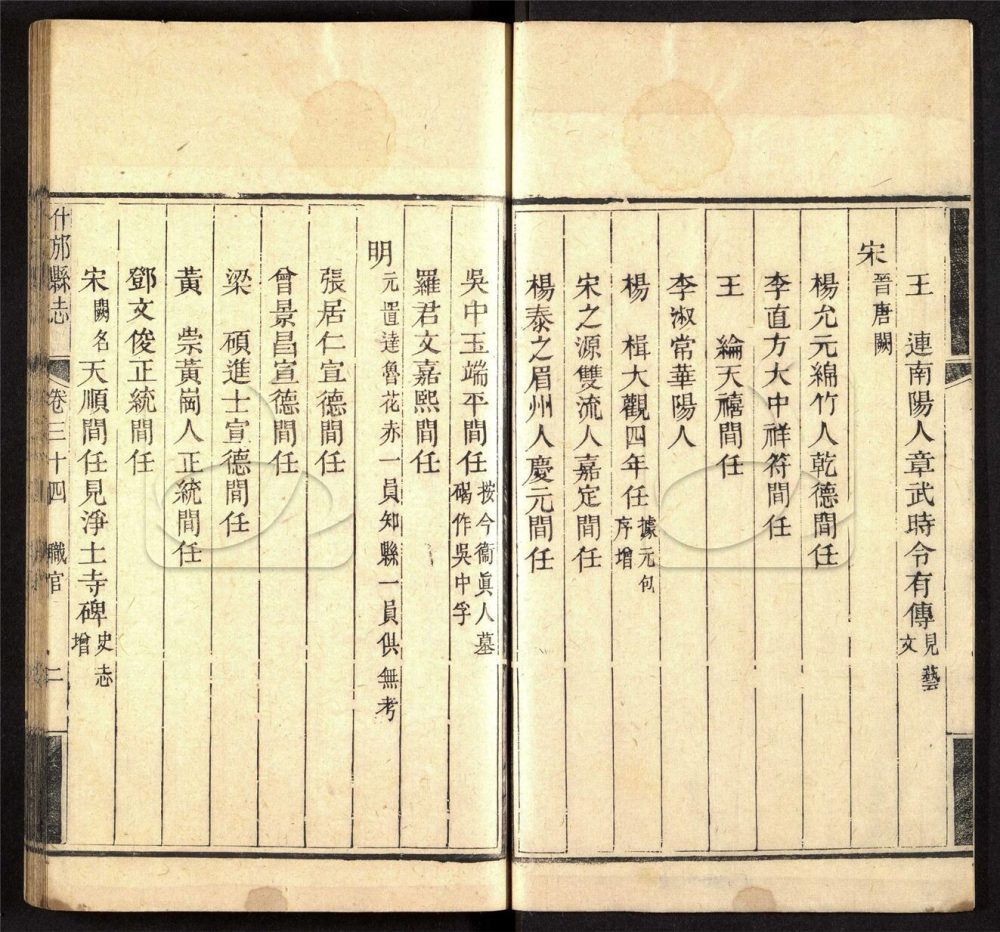 王　連南陽人章武時令有傳見藝文
宋晉唐闕
楊允元綿竹人乾德間任
李直方大中祥符間任
王　綸天禧間任
李淑常華陽人
楊　楫大觀四年任據元包序增
宋之源雙流人嘉定間任
楊泰之眉州人慶元間任
吳中玉端平間任按今衞眞人墓碣作吳中孚
羅君文嘉熙間任
明元置達魯花赤一員知縣一員俱無考
張居仁宣德間任
曾景昌宣德間任
梁　碩進士宣德間任
黃　崇黃崗人正統間任
鄧文俊正統間任
宋闕名天順間任見淨土寺碑史志增
什邡縣志　卷三十四　職官　二